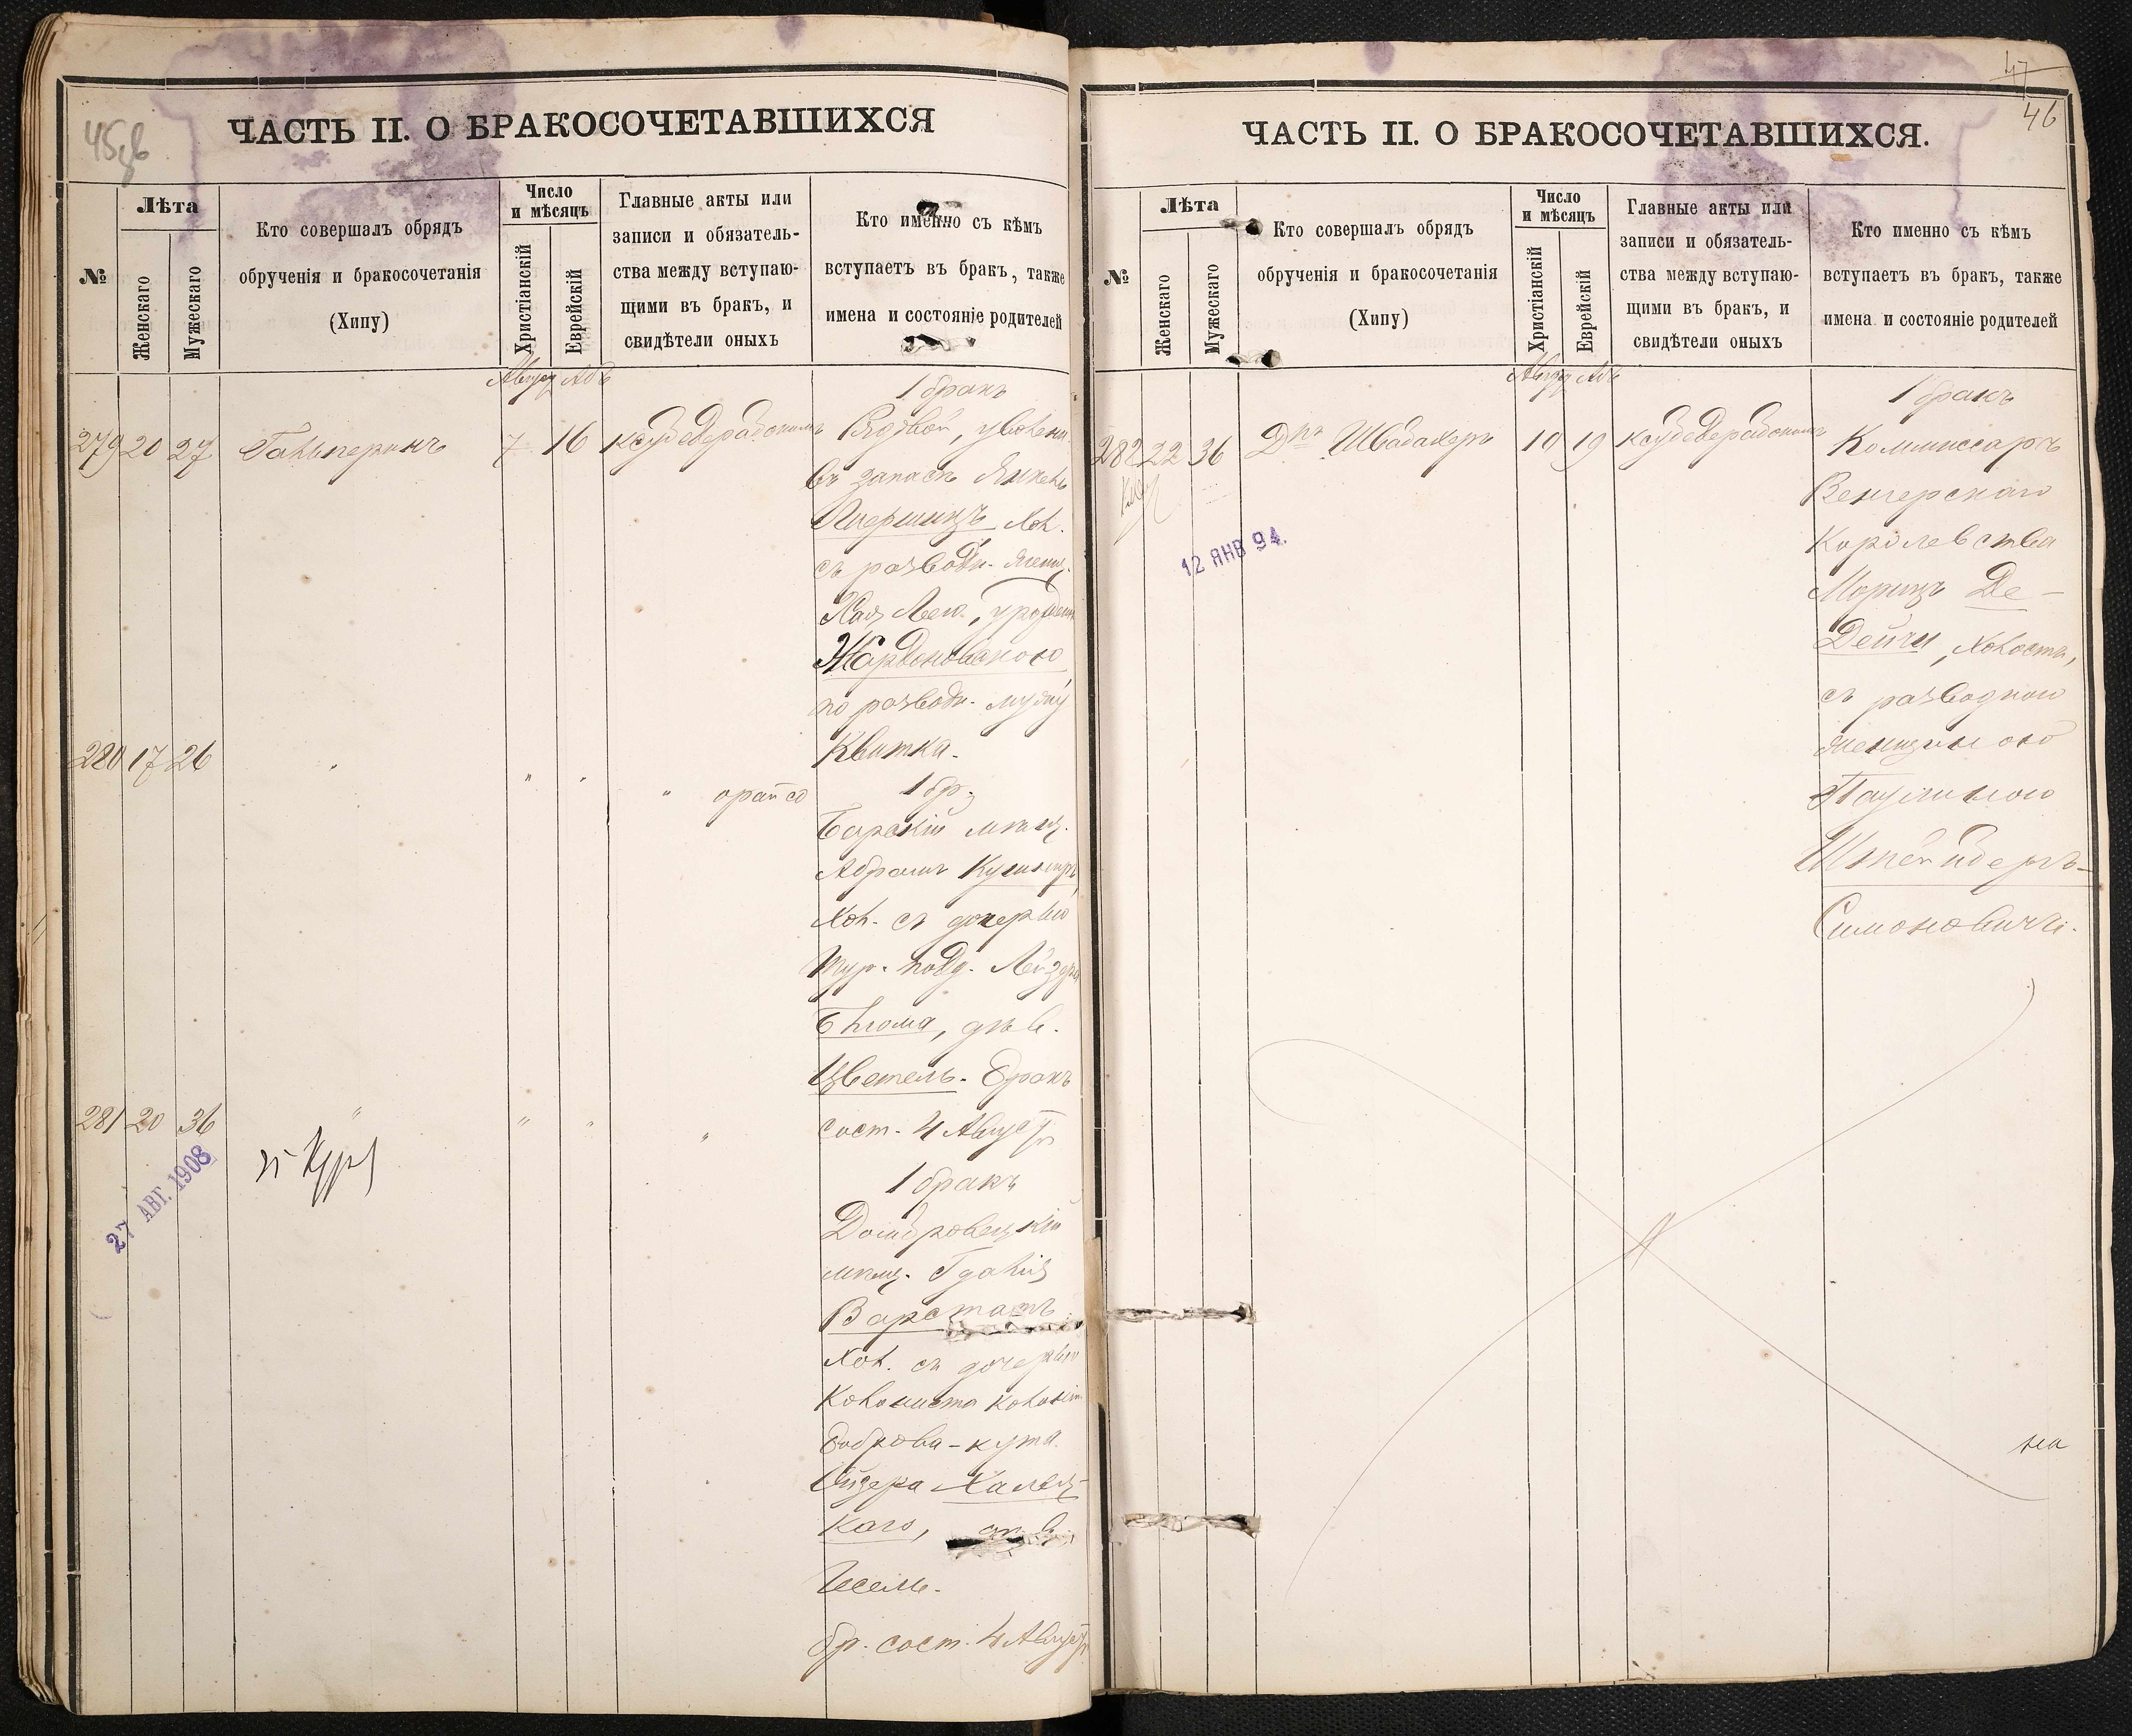 45об
ЧАСТЬ II. О БРАКОСОЧЕТАВШИХСЯ
№
Лѣта
Женскаго
Мужескаго
Кто совершалъ обрядъ
обрученія и бракосочетанія
(Хипу)
Число
и мѣсяцъ
Христіанскій
Еврейскій
Главные акты или
записи и обязатель-
ства между вступаю-
щими въ бракъ, и
свидѣтели оныхъ
Кто именно съ кѣмъ
вступаетъ въ бракъ, также
имена и состояніе родителей
Август Абъ
1 бракъ
279 20 27 Гальперинъ 7 16
Рядовой, уволенн.
въ запасъ Янкель
хол.
съ разводн. женщ.
Хая Лею, урожден
Жардоновскою
по разводн. мужу
Квитка.
280 17 26 " " " "
1 бр.
Барскій мѣщ.
Абрамъ Кушниръ,
хол. съ дочерью
тур. подд. Лейзера
Блюма, дѣв.
Цветель. Бракъ
сост. 4 Август
281 20 36 " " " "
27 АВГ. 1908
1 бракъ
Домбровецкій
мѣщ. Гдалій
Варстатъ
хол. съ дочерью
колониста колоніи
Боброва-кута
Ойзера Халец-
каго, дѣв.
бр. сост. 4 Август
47
46
ЧАСТЬ II. О БРАКОСОЧЕТАВШИХСЯ.
№
Лѣта
Женскаго
Мужескаго
Кто совершалъ обрядъ
обрученія и бракосочетанія
(Хипу)
Число
и мѣсяцъ
Христіанскій
Еврейскій
Главные акты или
записи и обязатель-
ства между вступаю-
щими въ бракъ, и
свидѣтели оныхъ
Кто именно съ кѣмъ
вступаетъ въ бракъ, также
имена и состояніе родителей
Август Абъ
1 бракъ
282 22 36 Дръ Швабахеръ 10 19
Коммиссаръ
Венгерскаго
Королевства
Морицъ Де-
Дейчи, холостъ,
съ разводною
женщиною
Паулиною
Шнейдеръ-
Симоновичъ.
12 ЯНВ 94.
на